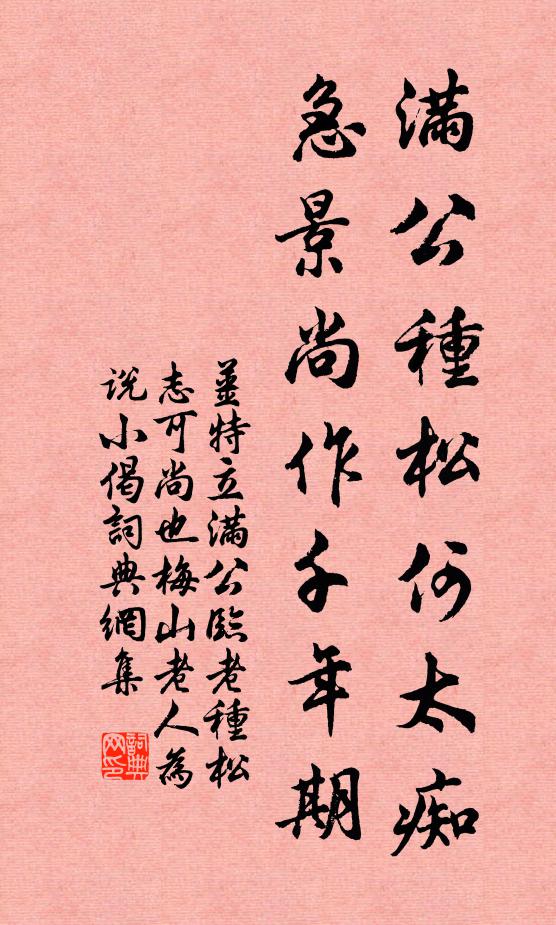 滿公種松何太痴
急景尚作千年期
姜特立滿公臨老種松
志可尚也梅山老人為
說小偈詞典網集
詞典网印